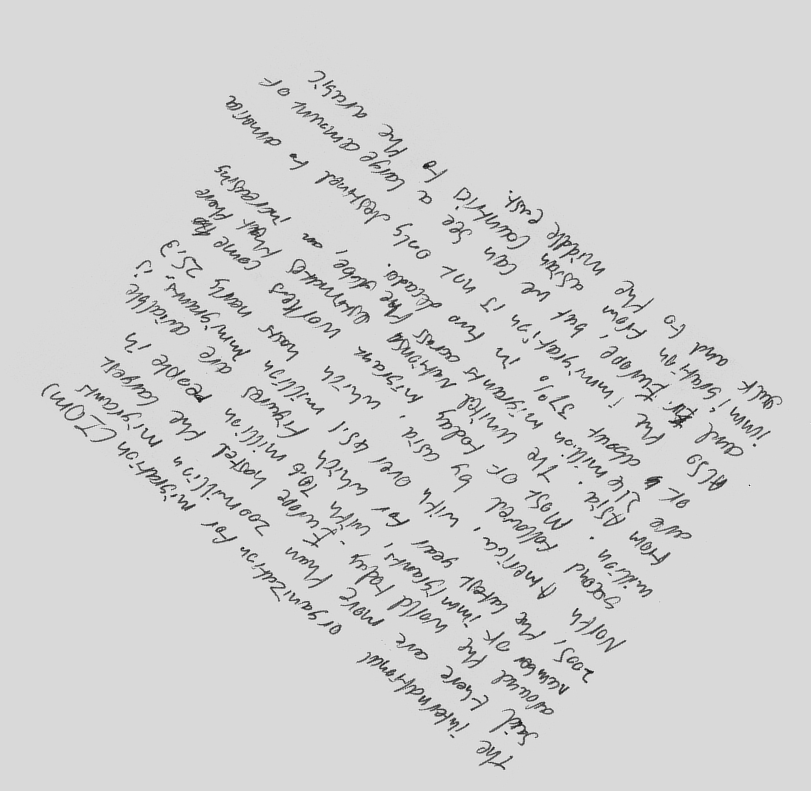 The international organization for migration (IOM)
said there are more than 200 million migrants
around the world today - Europe hosted the largest
number of immigrants, with 70.6 million people in
2005, the latest year for which figures are availible
North America, with over 45.1 million immigrants, is
second followed by asia, which hosts nearly 25,3
million. Most of today migrant workers come
from Asia. The united Nations estimates that there
are 214 million migrants across the globe, an increasing
of about 37% in two decade.
Also the immigration is not only destined to amarica
and Europe but we can see a large amount of
immigration from asian countries to the arabic
gulf and to the middle east.